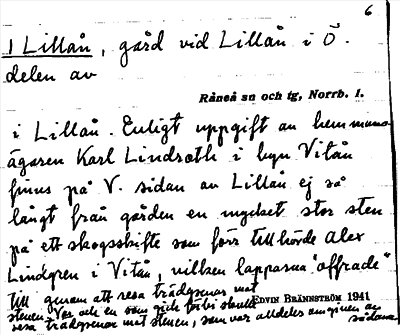 6
1 Lillån, gård vid Lillån i Ö.
delen av
Råneå sn och tg, Norrb. l.
i Lillån. Enligt uppgift av hemmans-
ägaren Karl Lindroth i byn Vitån
finns på V. sidan av Lillån ej så
långt från gården en mycket stor sten
på ett skogsskifte som förr tillhörde Alex
Lindgren i Vitån, vilken lapparna "offrade"
till genom att resa trädgrenar mot
stenen. Var och en som gick förbi skulle
resa trädgrenar mot stenen, som var alldeles omgiven av
sådana.
EDVIN BRÄNNSTRÖM 1941